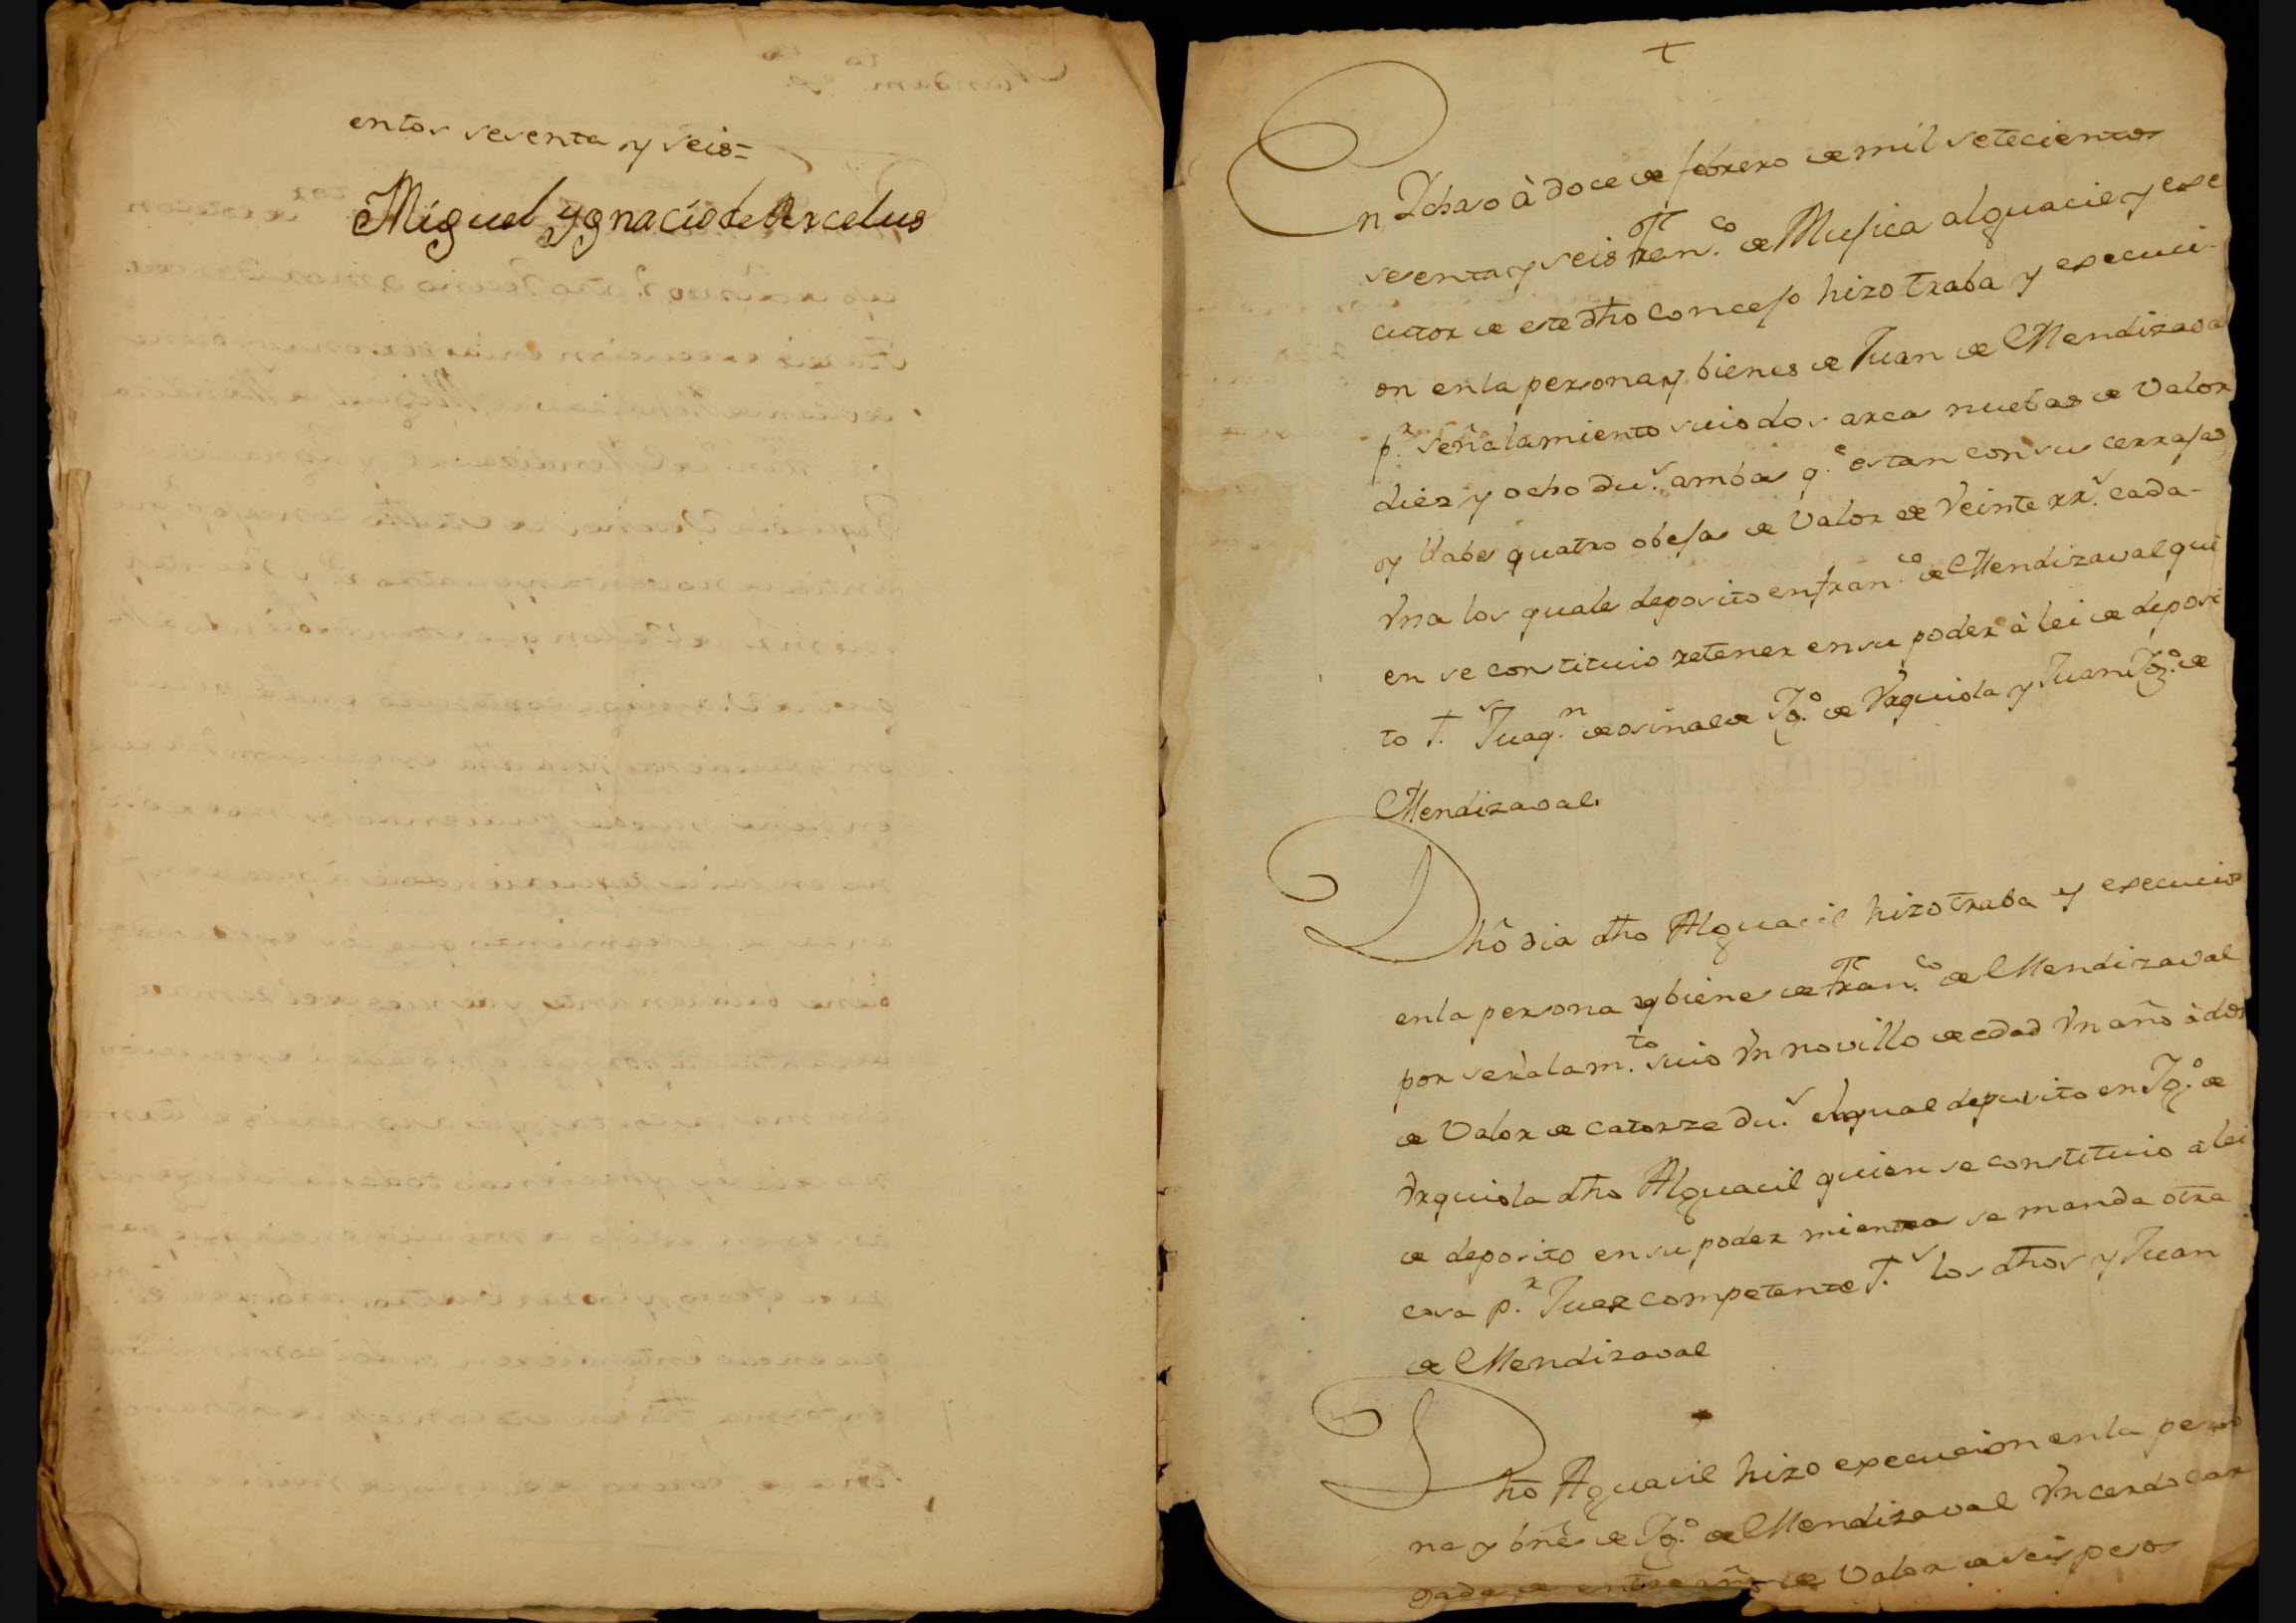 entos sesenta y seis=
Miguel Ygnacio de Arcelus
+
En Ichaso à doce de febrero de mil setecientos
sesenta y seis Fran.co de Musica alguacil y exe
cutor de este dho Concejo hizo traba y execuci-
on en la persona y bienes de Juan de Mendizaval
p.r señalamiento suio dos arcas nuebas de Valor
diez y ocho du.s ambas q.e estan con sus cerrajas
y llabes quatro obejas de Valor de Veinte rr.s cada-
Vna los quales deposito en fran.co de Mendizaval qui
en se constituio retener en su poder à lei de deposi
to t.s Juaq.n de osinalde Ig.o de Vrquiola y Juan Ig.o de
Mendizaval.
Dhô dia dho Alguacil hizo traba y execucion
en la persona y bienes de Fran.co de Mendizaval
por señalam.to suio Vn novillo de edad Vn año à dos
de Valor de catorze du.s el qual deposito en Ig.o de
Vrquiola dho Alguacil quien se constituio a lei
de deposito en su poder mientras se manda otra
cosa p.r Juez competente t.s los dhos y Juan
de Mendizaval
Dho Aguacil hizo execucion en la perso
na y bnês de Ig.o de Mendizaval Vn cerdo
de Valor de seis pesos